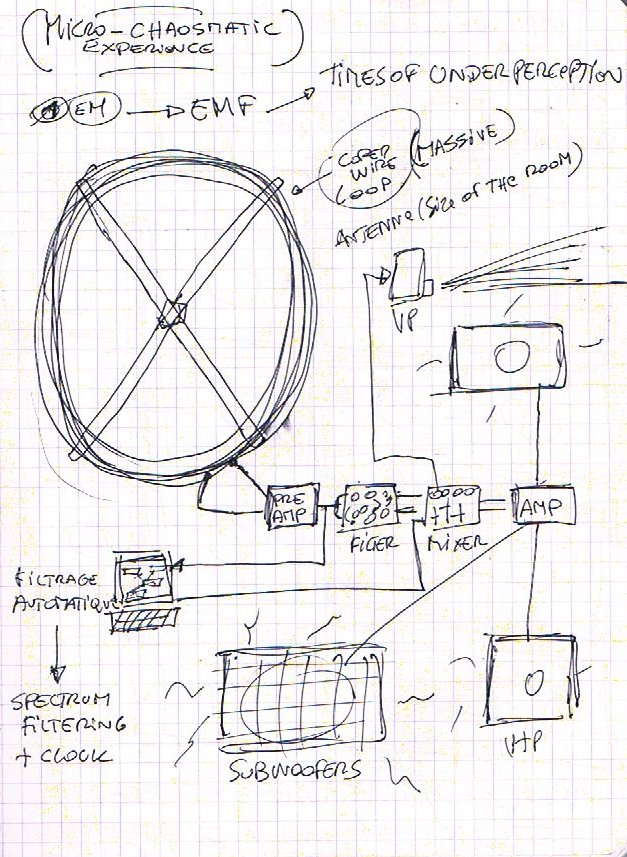 (MICRO-CHAOSMATIC
EXPERIENCE)
EM → EMF → TIMES OF UNDERPERCEPTION
COPER
WIRE
LOOP
(MASSIVE)
ANTENNE (SIZE OF THE ROOM)
VP
PRE
AMP
FILTER
MIXER
AMP
FILTRAGE
AUTOMATIQUE
SPECTRUM
FILTERING
+ CLOCK
SUBWOOFERS
HP